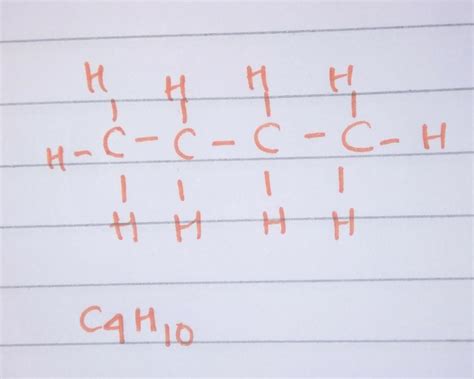 H H H H
H-C-C-C-C-H
H H H H
C4H10